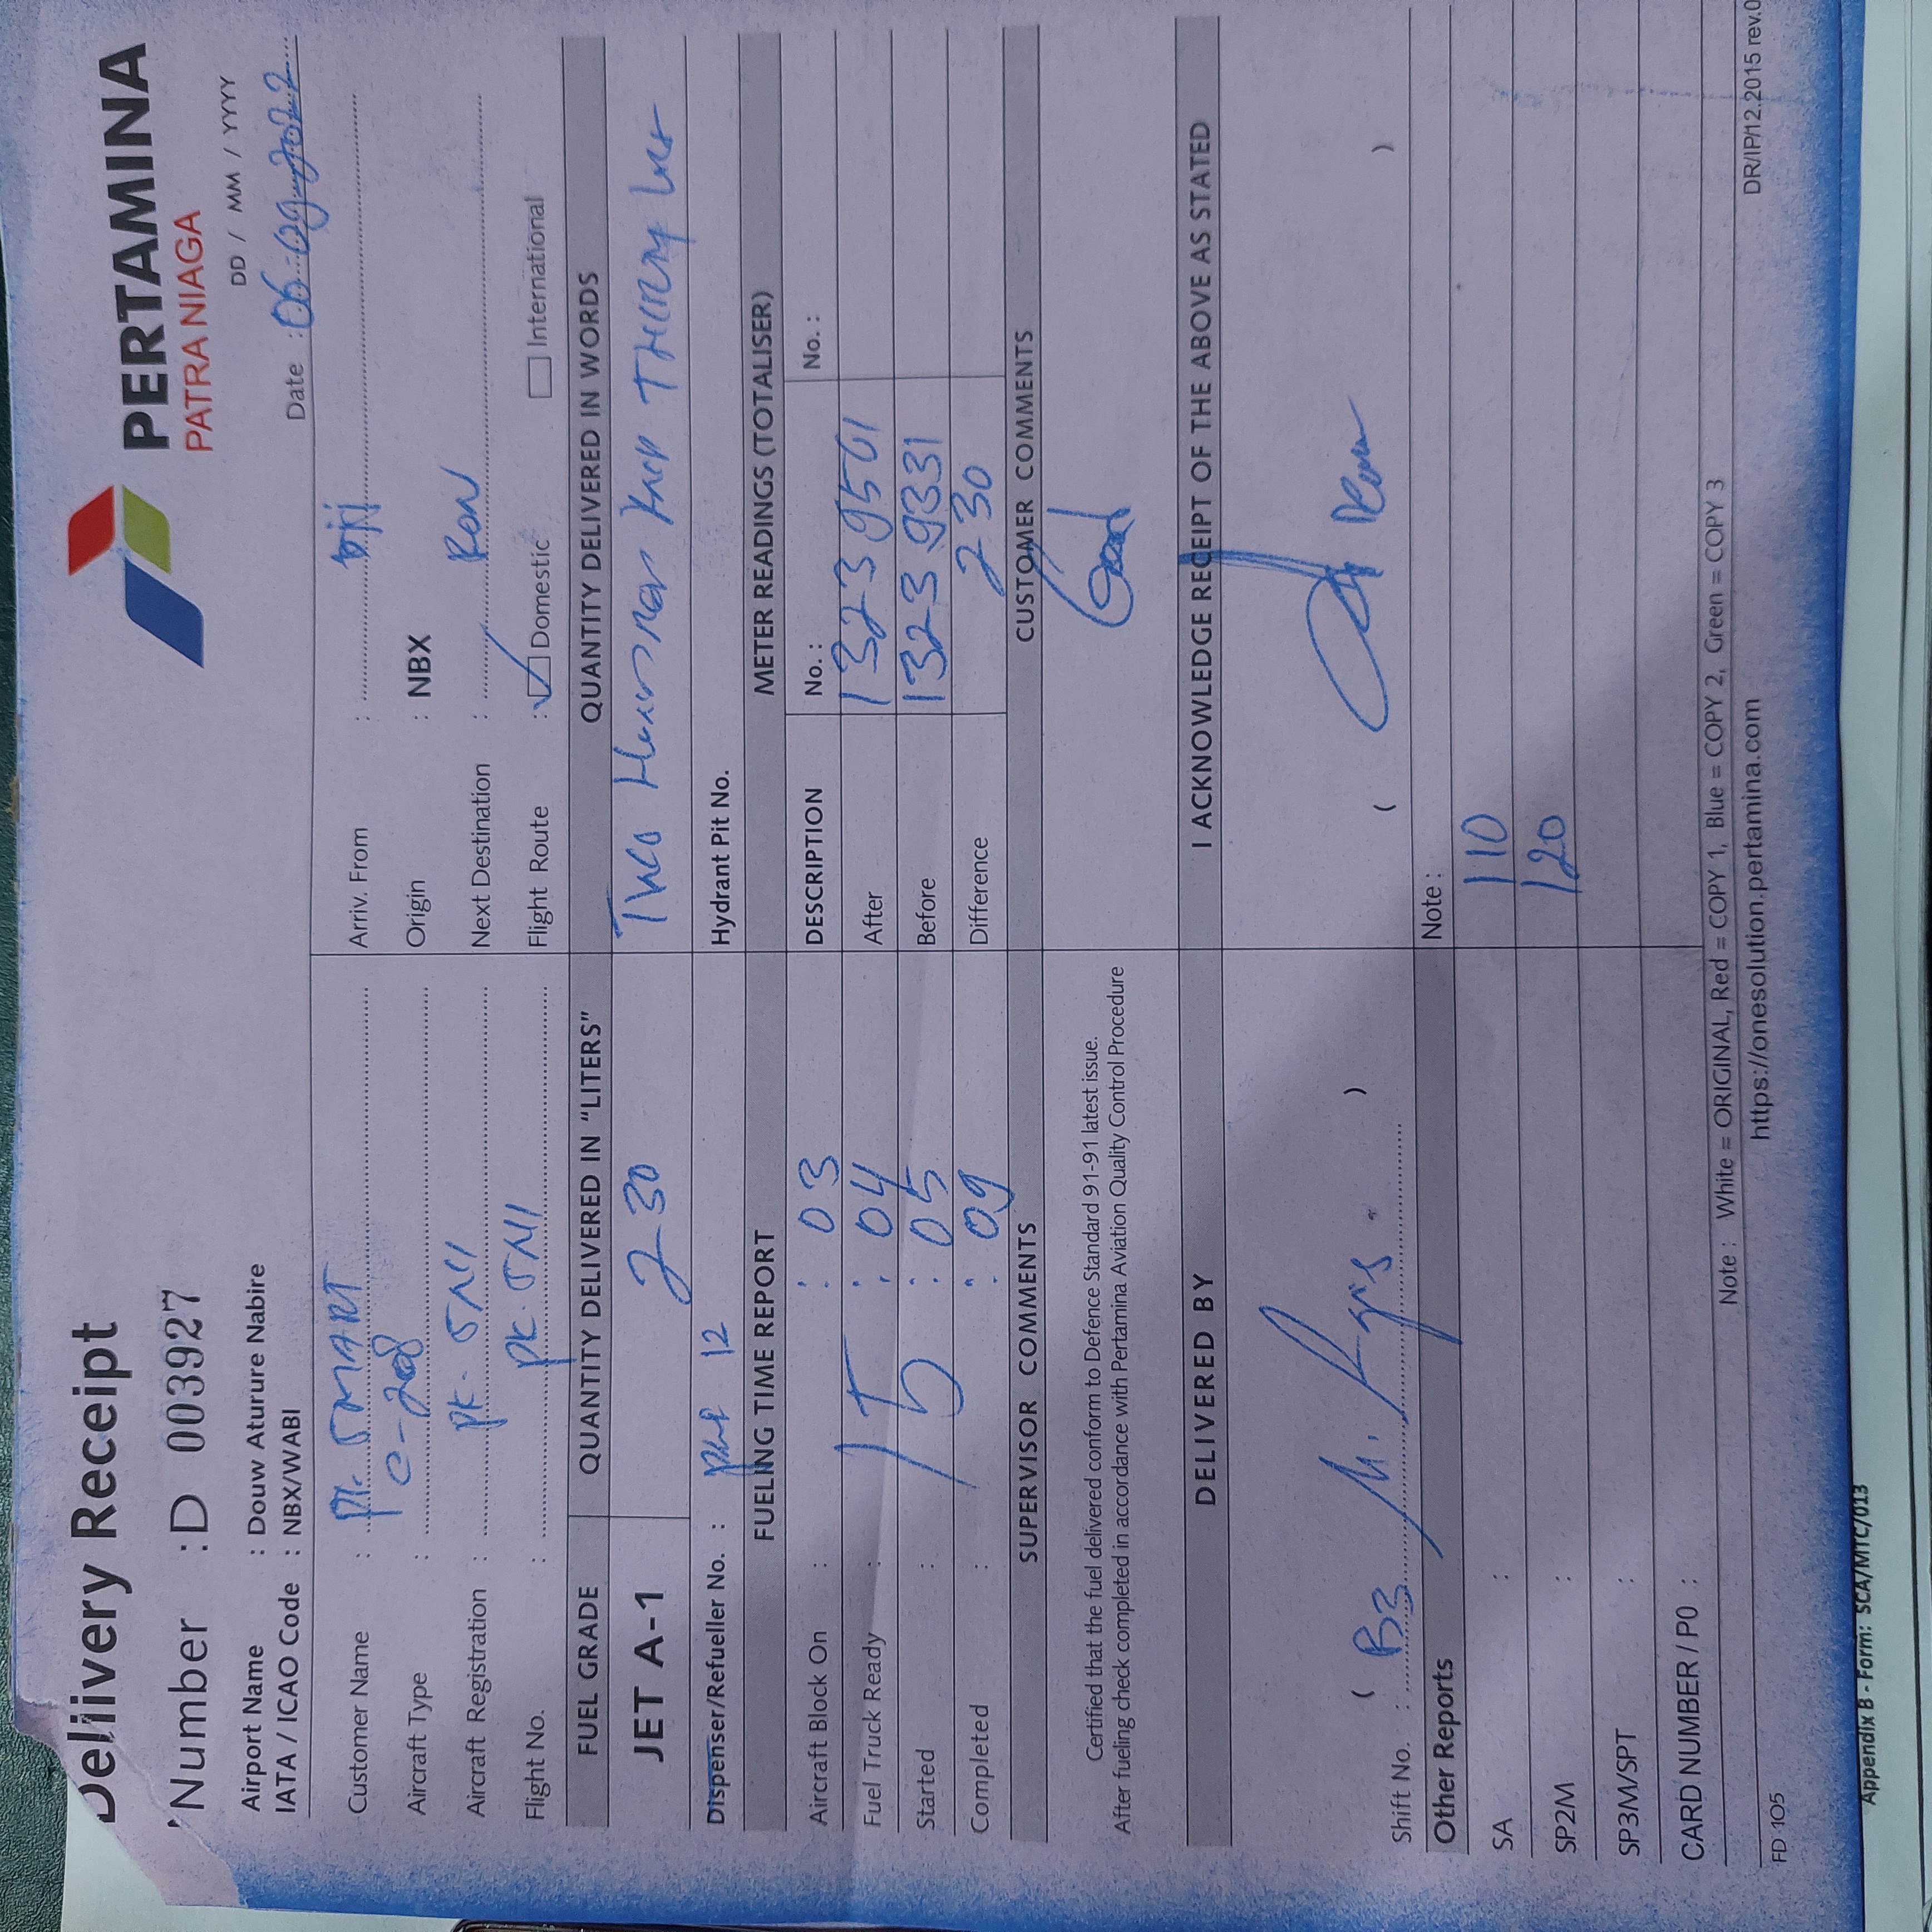 Delivery Receipt
PERTAMINA
PATRA NIAGA
Number : D 003927
DD / MM / YYYY
Airport Name : Douw Aturure Nabire
IATA / ICAO Code : NBX/WABI
Date : 06
Customer Name : PT. SMART
Arriv. From :
Aircraft Type : C-208
Origin : NBX
Aircraft Registration : PK. SNI
Next Destination :
Flight No. : PK. SNI
Flight Route : Domestic International
FUEL GRADE QUANTITY DELIVERED IN "LITERS" QUANTITY DELIVERED IN WORDS
JET A-1 230 Two
Dispenser/Refueller No. : 12 Hydrant Pit No.
FUELING TIME REPORT METER READINGS (TOTALISER)
Aircraft Block On : : 03 DESCRIPTION No. : No. :
Fuel Truck Ready : : 04 After 13239561
Started : : 05 Before 13239331
Completed : : 09 Difference 230
SUPERVISOR COMMENTS CUSTOMER COMMENTS
Good
Certified that the fuel delivered conform to Defence Standard 91-91 latest issue.
After fueling check completed in accordance with Pertamina Aviation Quality Control Procedure
DELIVERED BY I ACKNOWLEDGE RECEIPT OF THE ABOVE AS STATED
( ) ( )
Shift No. : B3
Other Reports Note :
SA : 110
SP2M : 120
SP3M/SPT :
CARD NUMBER / PO :
Note : White = ORIGINAL, Red = COPY 1, Blue = COPY 2, Green = COPY 3
FD 105 https://onesolution.pertamina.com DR/IP/12.2015 rev.0
Appendix B - Form: SCA/MTC/013